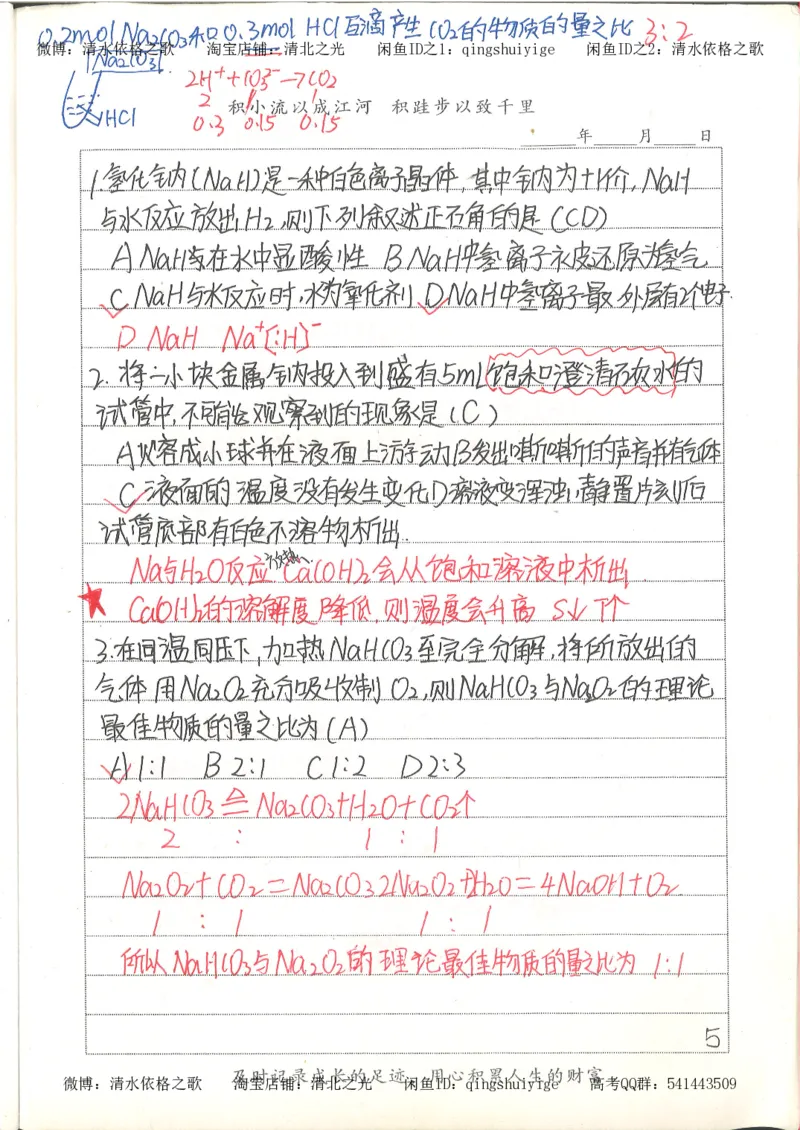 0.2mol Na2CO3和0.3mol HCl互滴产生CO2的物质的量之比 3:2
微博：清水依格之歌 淘宝店铺：清北之光 闲鱼ID之1：qingshuiyige 闲鱼ID之2：清水依格之歌
Na2CO3
HCl
2H⁺+CO3²⁻→CO2
2 1 1
0.3 0.15 0.15
积小流以成江河 积跬步以致千里
年 月 日
1.氢化钠(NaH)是一种白色离子晶体,其中钠为+1价,NaH
与水反应放出H2,则下列叙述正确的是(CD)
A NaH在水中显酸性 B NaH中氢离子被还原为氢气
C NaH与水反应时,水为氧化剂 D NaH中氢离子最外层有2个电子
D NaH Na⁺[:H]⁻
2.将一小块金属钠投入到盛有5mL饱和澄清石灰水的
试管中,不可能观察到的现象是(C)
A熔成小球并在液面上游动 B发出嘶嘶的声音并有气体
C液面的温度没有发生变化 D溶液变浑浊,静置片刻后
试管底部有白色不溶物析出.
Na与H2O反应放热 Ca(OH)2会从饱和溶液中析出
★ Ca(OH)2的溶解度降低,则温度会升高 S↓ T↑
3.在同温同压下,加热NaHCO3至完全分解,将所放出的
气体用Na2O2充分吸收制O2,则NaHCO3与Na2O2的理论
最佳物质的量之比为(A)
A 1:1 B 2:1 C 1:2 D 2:3
2NaHCO3 ≜ Na2CO3+H2O+CO2↑
2 : 1 : 1
Na2O2+CO2=Na2CO3 2Na2O2+H2O=4NaOH+O2
1 : 1 1 : 1
所以NaHCO3与Na2O2的理论最佳物质的量之比为 1:1
5
及时记录成长的足迹 用心积累人生的财富
微博：清水依格之歌 淘宝店铺：清北之光 闲鱼ID：qingshuiyige 高考QQ群：541443509